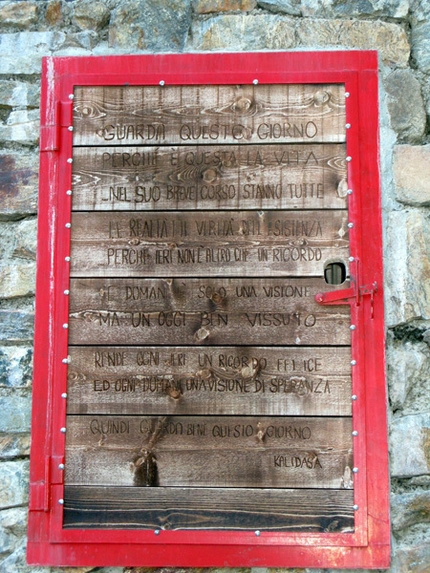 GUARDA QUESTO GIORNO
PERCHÈ È QUESTA LA VITA
NEL SUO BREVE CORSO STANNO TUTTE
LE REALTÀ E VERITÀ DELL'ESISTENZA
PERCHÈ IERI NON È ALTRO CHE UN RICORDO
DOMANI SOLO UNA VISIONE
MA UN OGGI BEN VISSUTO
RENDE OGNI IERI UN RICORDO FELICE
ED OGNI DOMANI UNA VISIONE DI SPERANZA
QUINDI GUARDA BENE QUESTO GIORNO
KALIDASA